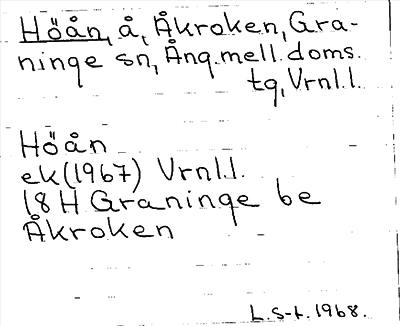 Höån, å, Åkroken, Gra-
ninge sn, Ång.mell. doms.
tg, Vrnl.l.
Höån
ek(1967) Vrnl.l.
18 H Graninge be
Åkroken
L.S-t. 1968.